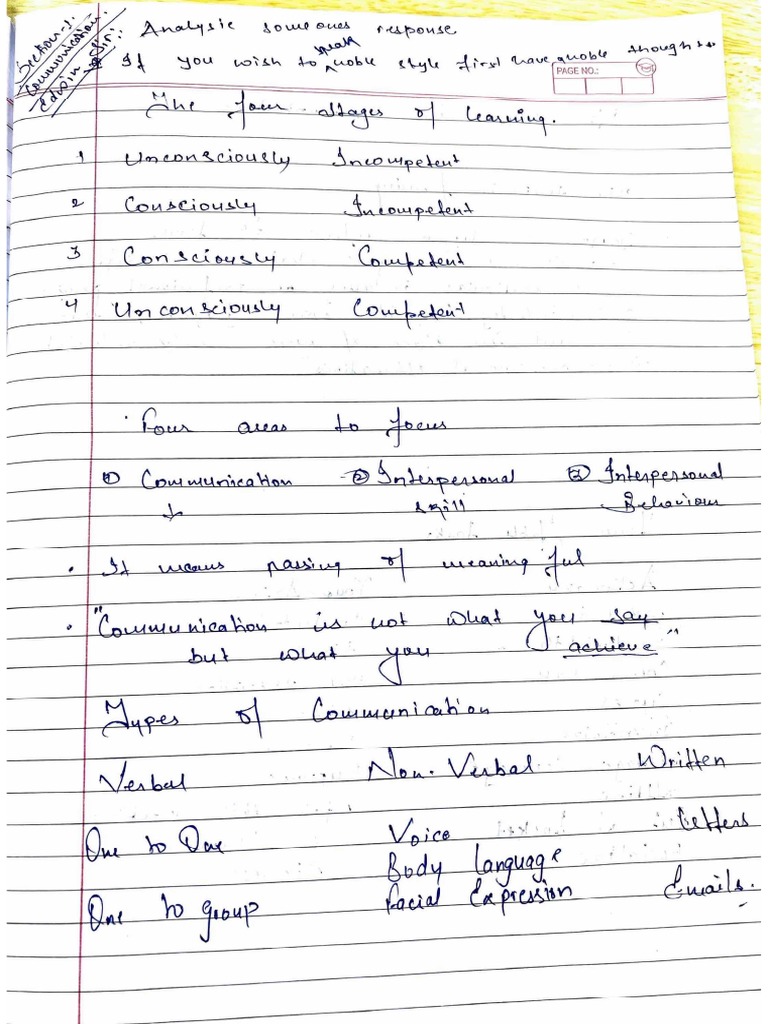 Section-1.
Communication.
Edvin Sir:
Analysie someones response
If you wish to speak noble style first have a noble thoughts.
PAGE NO.:
The four stages of learning.
1 Unconsciously Incompetent
2 Consciously Incompetent
3 Consciously Competent
4 Unconsciously Competent
Four areas to focus
① Communication ② Interpersonal skill ③ Interpersonal Behaviour
• It means passing of meaning ful
• "Communication is not what you say
but what you achieve"
Types of Communication
Verbal Non-Verbal Written
One to One Voice Letters
Body language
One to group Facial Expression Emails.